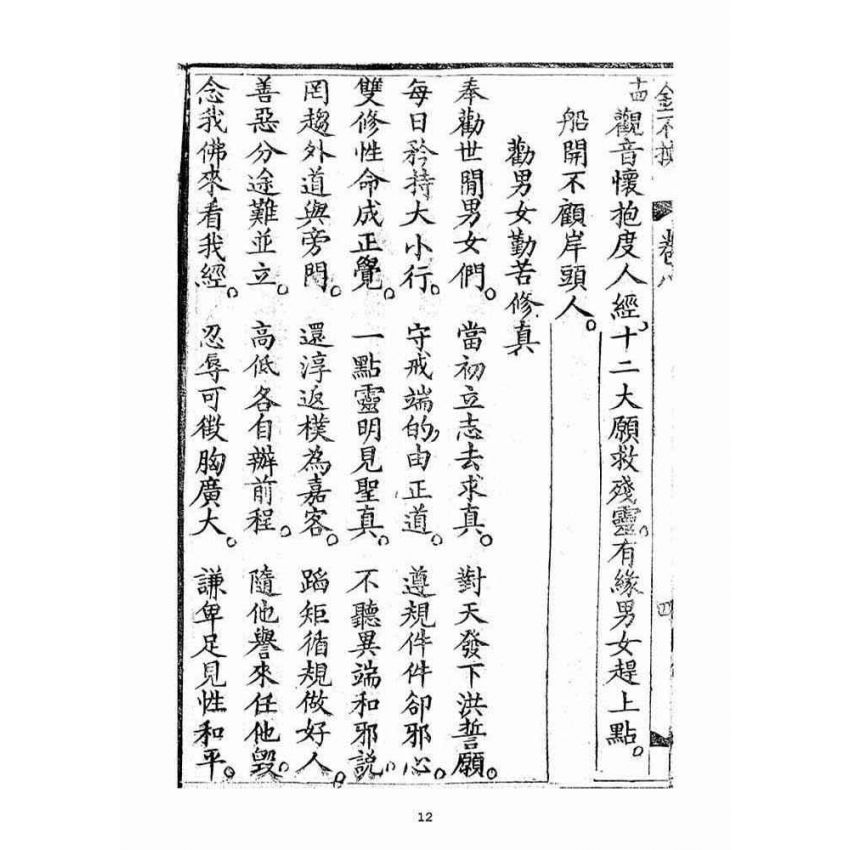 金不換 卷八 四
十四
觀音懷抱度人經。十二大願救殘靈。有緣男女趕上點。
船開不顧岸頭人。
勸男女勤苦修真
奉勸世間男女們。當初立志去求真。對天發下洪誓願。
每日矜持大小行。守戒端的由正道。遵規件件卻邪心。
雙修性命成正覺。一點靈明見聖真。不聽異端和邪說。
罔趨外道與旁門。還淳返樸為嘉客。蹈矩循規做好人。
善惡分途難並立。高低各自辦前程。隨他譽來任他毀。
念我佛來看我經。忍辱可徵胸廣大。謙卑足見性和平。
12